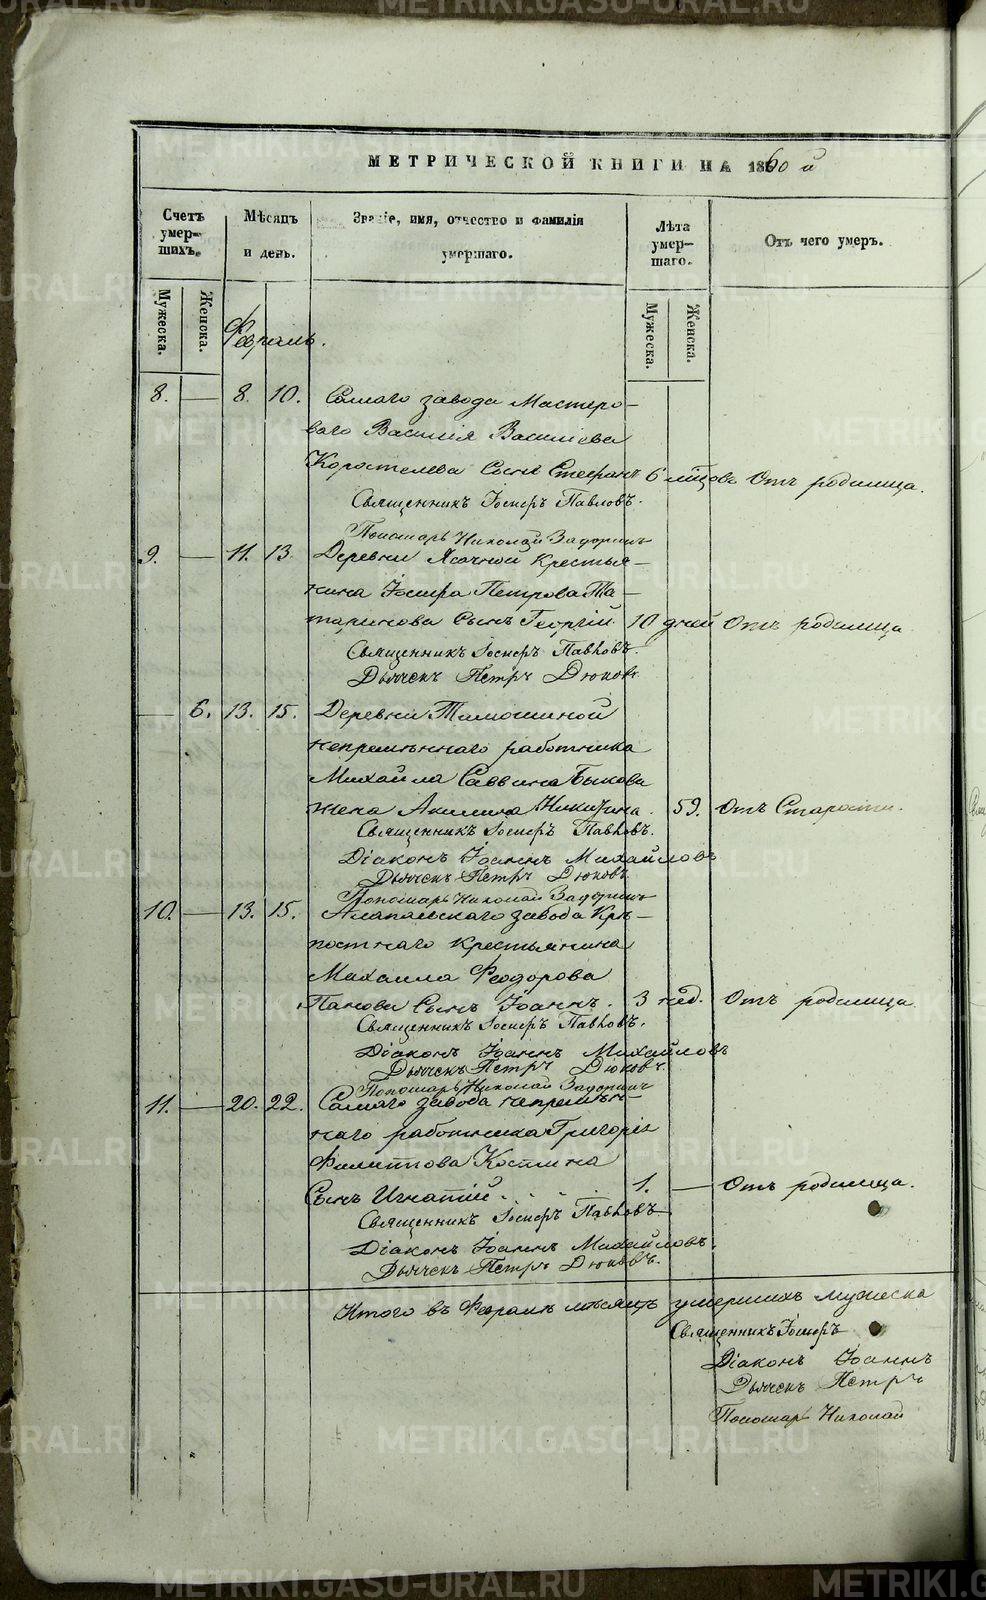 МЕТРИЧЕСКОЙ КНИГИ НА 1860 й
Счетъ умер-шихъ.
Мѣсяцъ и день.
Званіе, имя, отчество и фамилія умершаго.
Лѣта умер-шаго.
Отъ чего умеръ.
Мужеска.
Женска.
Мужеска.
Женска.
Февраль.
8. — 8. 10. Самаго завода Мастеро-
ваго Василія Василіева
Коростелева Сынъ Стефанъ 6 мѣцовъ Отъ родимца.
Священникъ Іосифъ Павловъ.
Пономарь Николай Задоринъ
9. — 11. 13. Деревни Ясачной Крестья-
нина Іосифа Петрова Та-
таринова Сынъ Георгій 10 дней Отъ родимца
Священникъ Іосифъ Павловъ.
Дьячекъ Петръ Дюковъ.
— 6. 13. 15. Деревни Тимошиной
непремѣннаго работника
Михайла Саввина Быкова
жена Акилина Никитина. 59. Отъ Старости.
Священникъ Іосифъ Павловъ.
Діаконъ Іоаннъ Михайловъ
Дьячекъ Петръ Дюковъ.
Пономарь Николай Задоринъ
10. — 13. 15. Алапаевскаго завода Крѣ-
постнаго крестьянина
Михаила Феодорова
Панова Сынъ Іоаннъ. 3 нед. Отъ родимца.
Священникъ Іосифъ Павловъ.
Діаконъ Іоаннъ Михайловъ
Дьячекъ Петръ Дюковъ.
Пономарь Николай Задоринъ
11. — 20. 22. Самаго завода непремѣн-
наго работника Григорія
Филиппова Костина
Сынъ Игнатій. 1. — Отъ родимца.
Священникъ Іосифъ Павловъ
Діаконъ Іоаннъ Михайловъ.
Дьячекъ Петръ Дюковъ.
Итого въ Февралѣ мѣсяцѣ умершихъ мужеска
Священникъ Іосифъ
Діаконъ Іоаннъ
Дьячекъ Петръ
Пономарь Николай
METRIKI.GASO-URAL.RU